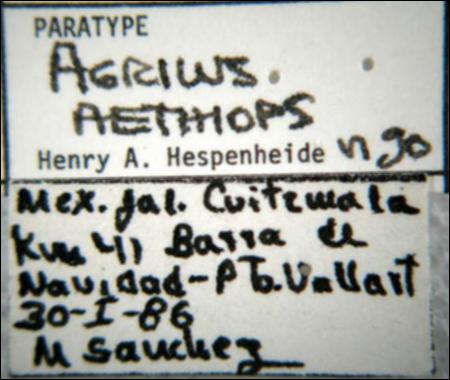 PARATYPE
AGRILUS.
AETHIOPS
Henry A. Hespenheide
Mex. Jal. Cuitzmala
Km 41 Barra de
Navidad-Pto.Vallart
30-I-86
M Sanchez